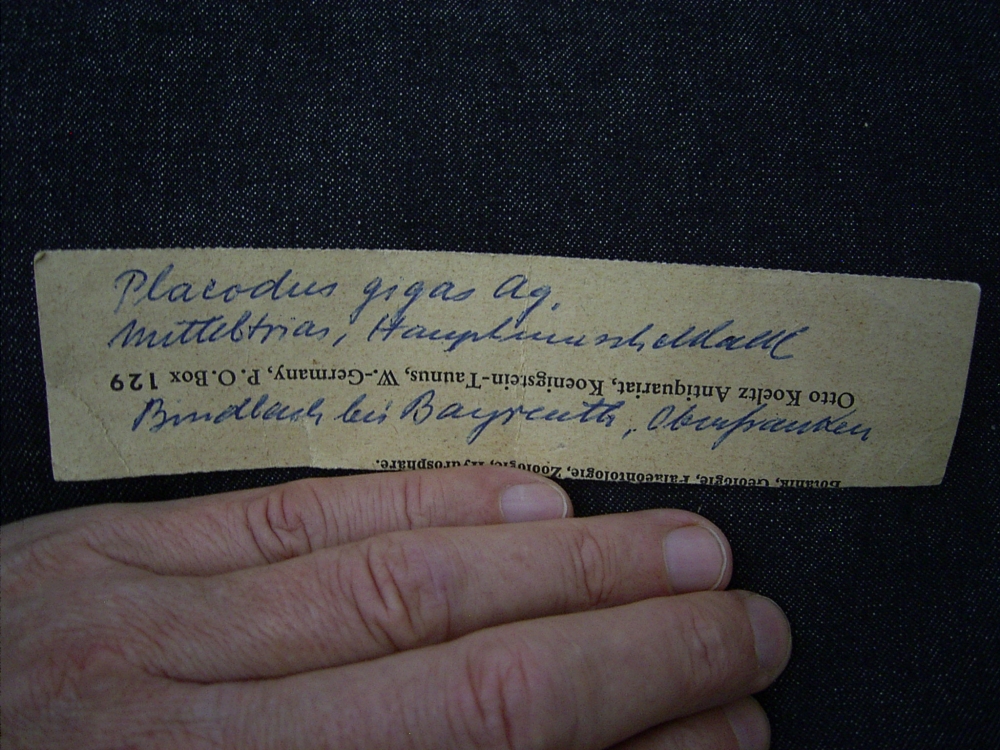 Placodus gigas Ag.
Mitteltrias, Hauptmuschelkalk
Otto Koeltz Antiquariat, Koenigstein-Taunus, W.-Germany, P.O.Box 129
Bindlach bei Bayreuth, Oberfranken
Botanik, Geologie, Palaeontologie, Zoologie, Hydrosphäre.